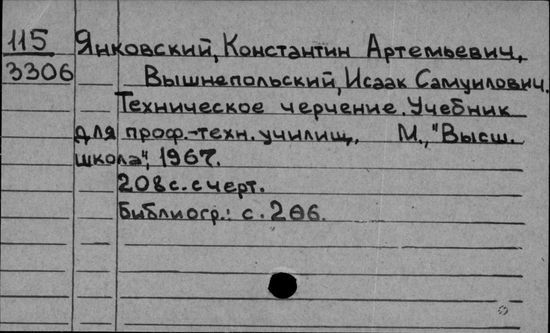 115 Янковский, Константин Артемьевич,
3306 Вышнепольский, Исаак Самуилович.
Техническое черчение. Учебник
для проф.-техн. училищ. М., "Высш.
школа", 1967.
208 с. с черт.
Библиогр.: с. 206.